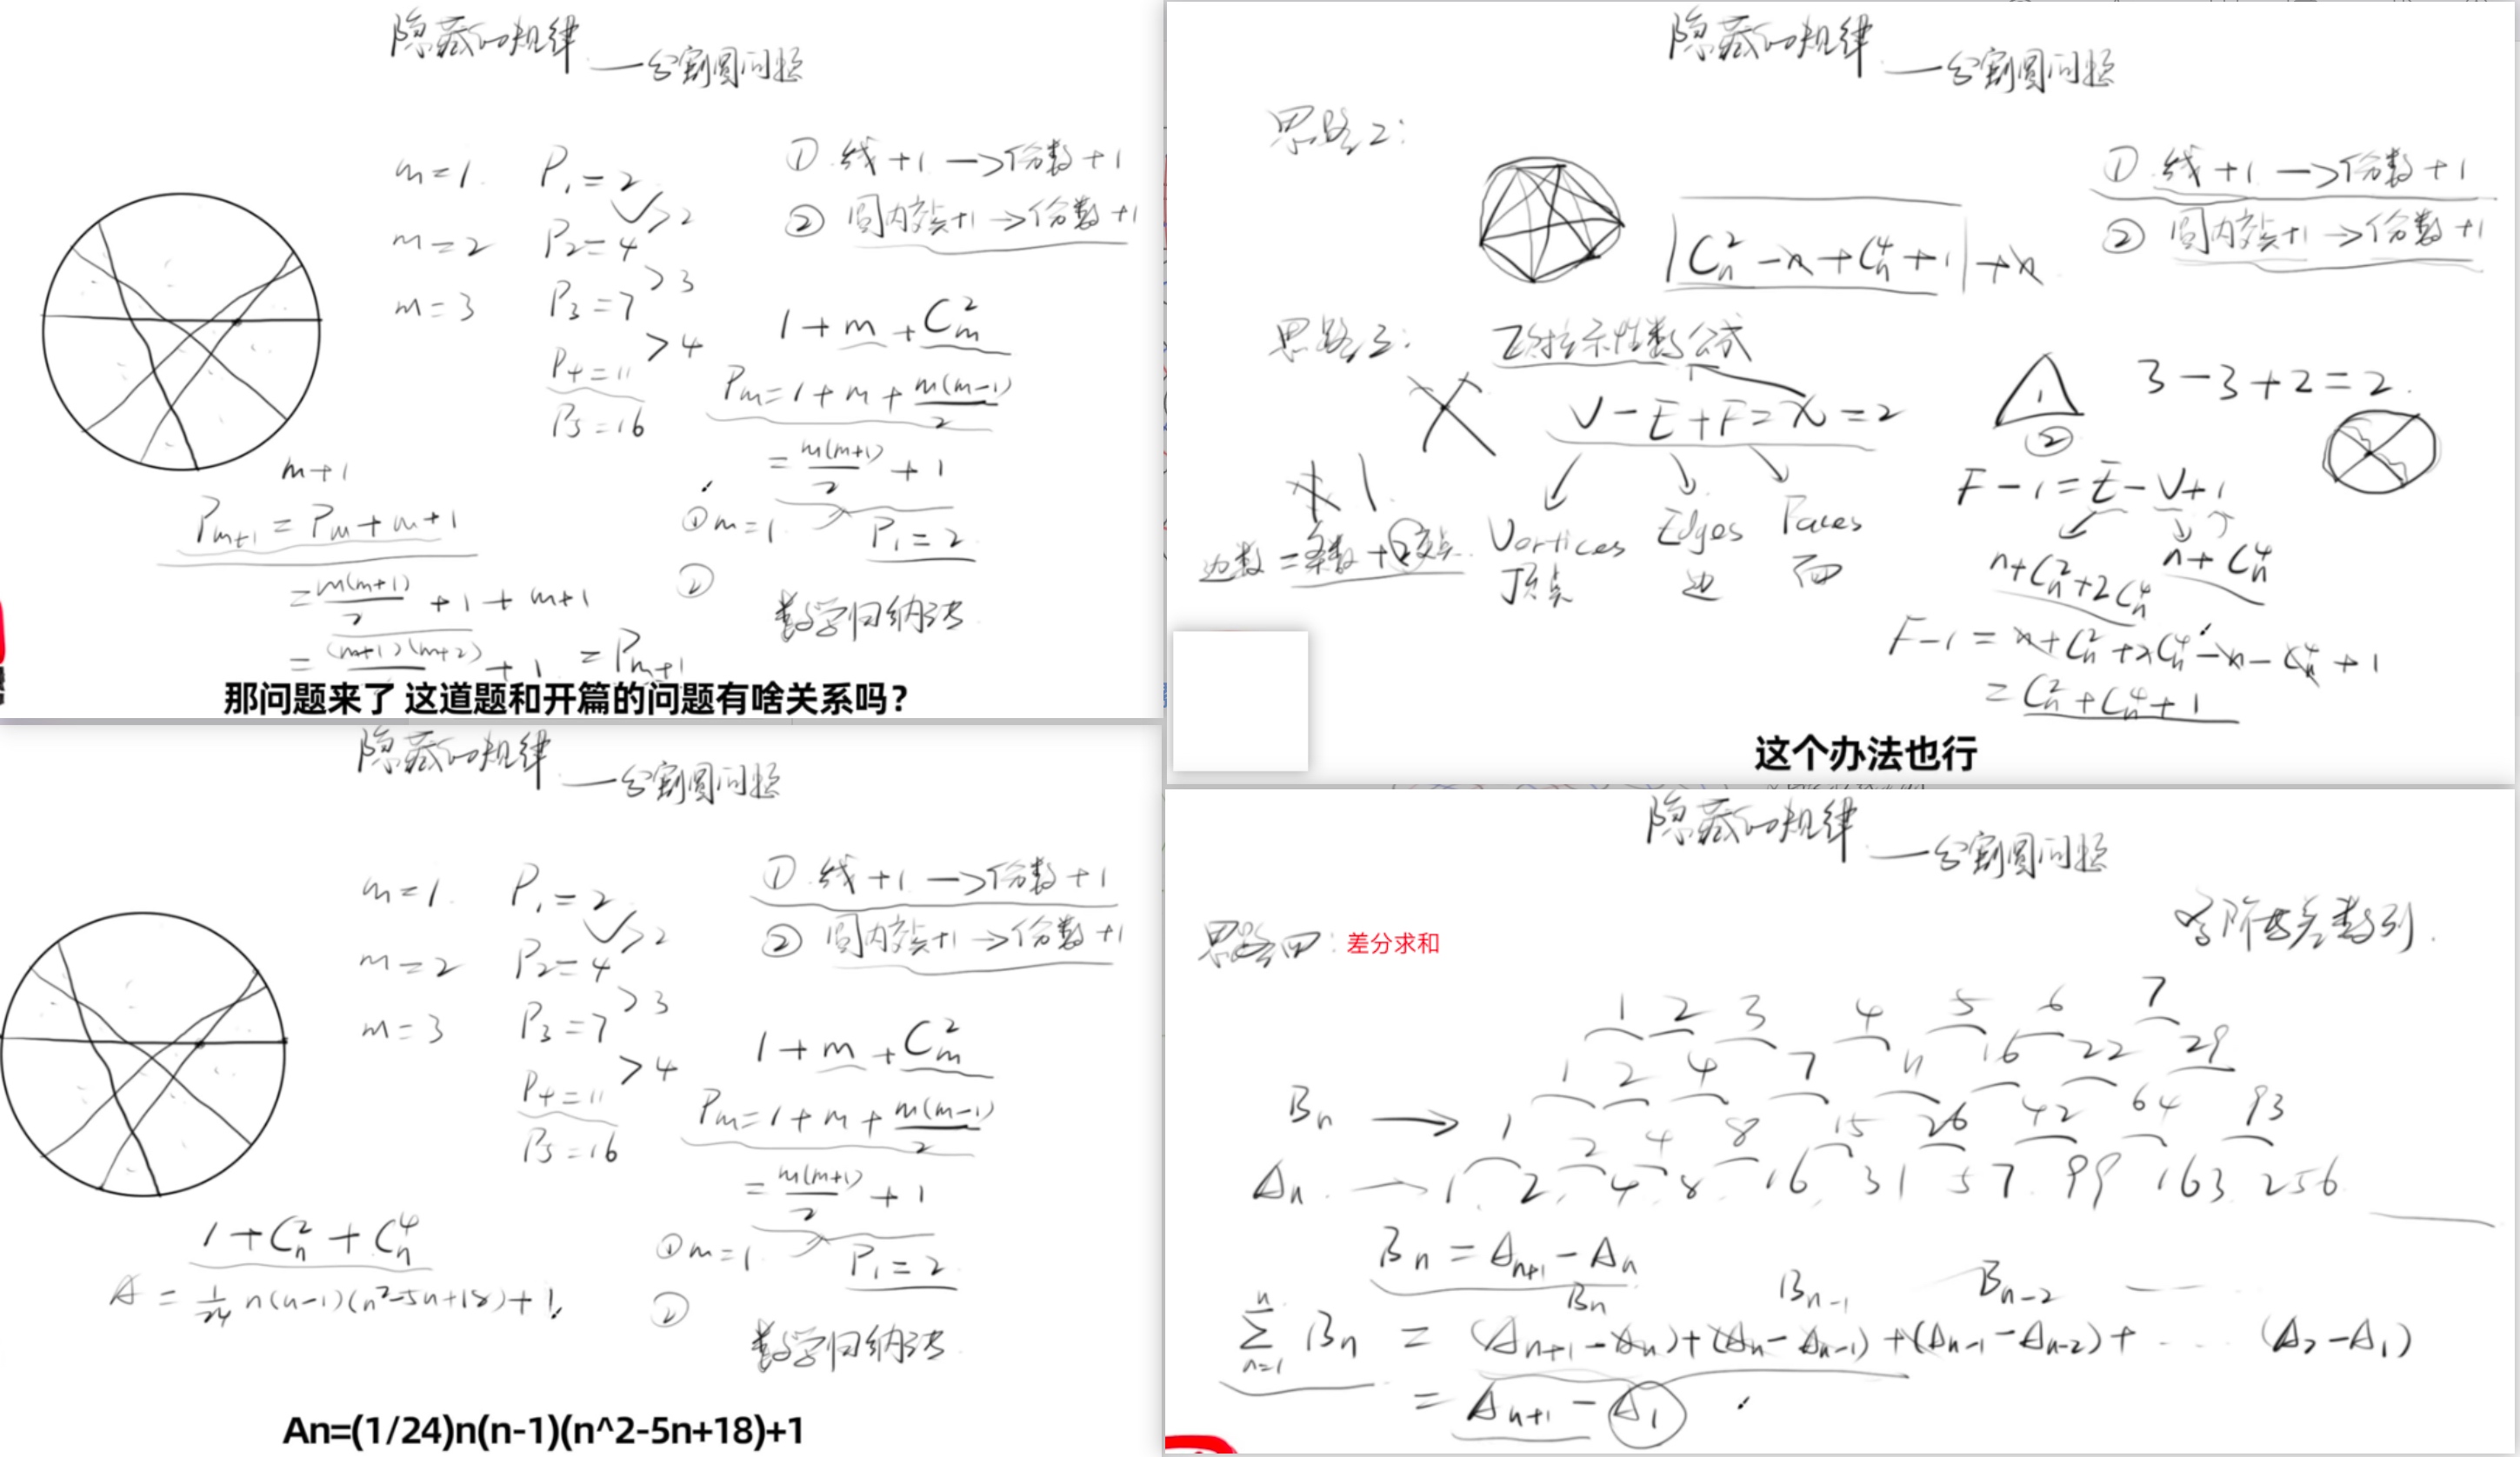 隐藏的规律
——分割圆问题
m=1. P₁=2
m=2 P₂=4 >2
m=3 P₃=7 >3
P₄=11 >4
P₅=16
① 线+1→份数+1
② 圆内交点+1→份数+1
1+m+C²ₘ
Pₘ=1+m+m(m-1)/2
=m(m+1)/2+1
① m=1. P₁=2
②
数学归纳法
m+1
Pₘ₊₁=Pₘ+m+1
=m(m+1)/2+1+m+1
=(m+1)(m+2)/2+1=Pₘ₊₁
那问题来了 这道题和开篇的问题有啥关系吗?
隐藏的规律
——分割圆问题
思路2:
C²ₙ-n+C⁴ₙ+1+n
① 线+1→份数+1
② 圆内交点+1→份数+1
思路3: 欧拉示性数公式
V-E+F=χ=2
Vortices Edges Faces
顶点 边 面
边数=条数+2交点
1
②
3-3+2=2.
F-1=E-V+1
n+C²ₙ+2C⁴ₙ n+C⁴ₙ
F-1=n+C²ₙ+2C⁴ₙ-n-C⁴ₙ+1
=C²ₙ+C⁴ₙ+1
这个办法也行
隐藏的规律
——分割圆问题
m=1. P₁=2
m=2 P₂=4 >2
m=3 P₃=7 >3
P₄=11 >4
P₅=16
① 线+1→份数+1
② 圆内交点+1→份数+1
1+m+C²ₘ
Pₘ=1+m+m(m-1)/2
=m(m+1)/2+1
① m=1. P₁=2
②
数学归纳法
1+C²ₙ+C⁴ₙ
A=1/24 n(n-1)(n²-5n+18)+1
An=(1/24)n(n-1)(n^2-5n+18)+1
隐藏的规律
——分割圆问题
思路四: 差分求和
高阶等差数列.
1 2 3 4 5 6 7
1 2 4 7 11 16 22 29
Bₙ→ 1 2 4 8 15 26 42 64 93
Aₙ→ 1 2 4 8 16 31 57 99 163 256
Bₙ=Aₙ₊₁-Aₙ
Bₙ Bₙ₋₁ Bₙ₋₂
n
∑ Bₙ = (Aₙ₊₁-Aₙ)+(Aₙ-Aₙ₋₁)+(Aₙ₋₁-Aₙ₋₂)+...(A₂-A₁)
n=1
=Aₙ₊₁-A₁